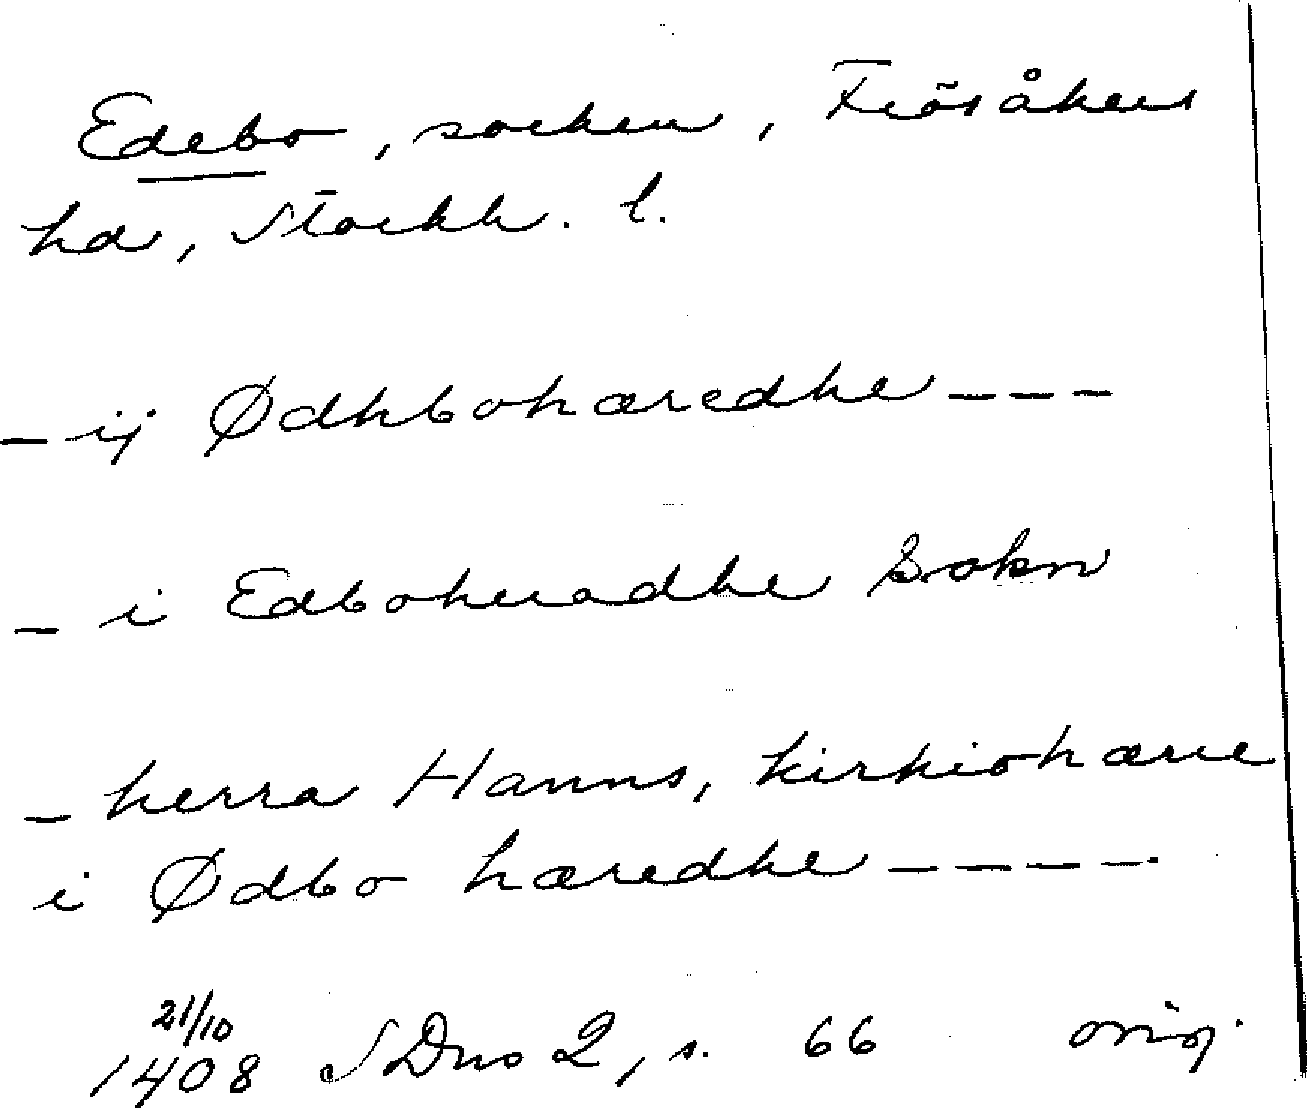 Edebo, socken, Frösåkers
hd, Stockh. l.
– ij Ødhbohæredhe – – –
– i Edboheradhe Sokn
– herra Hanns, kirkiohærre
i Ødbo hæredhe – – – –
21/10
1408 SDns 2, s. 66 orig.